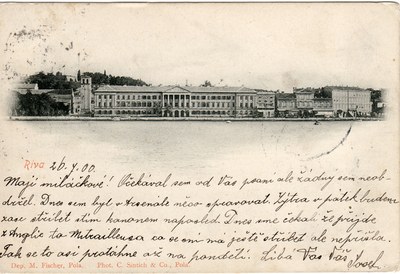 Riva 26./7. 00.
Mají miláčkové! Očekával sem od Vás psaní ale žádný sem neob-
držel. Dnes sem byl v Arsenále něco spravovat. Zýtra v pátek budem
zase střílet stím kanonem naposled. Dnes sme čekali že přijde
z Anglie ta Mitrailleusa co se sní má ještě střílet ale nepřišla.
Tak se to asi protáhne až na pondělí. Líbá Vás Váš
Josef
Dep. M. Fischer, Pola. Phot. C. Smrich & Co., Pola.